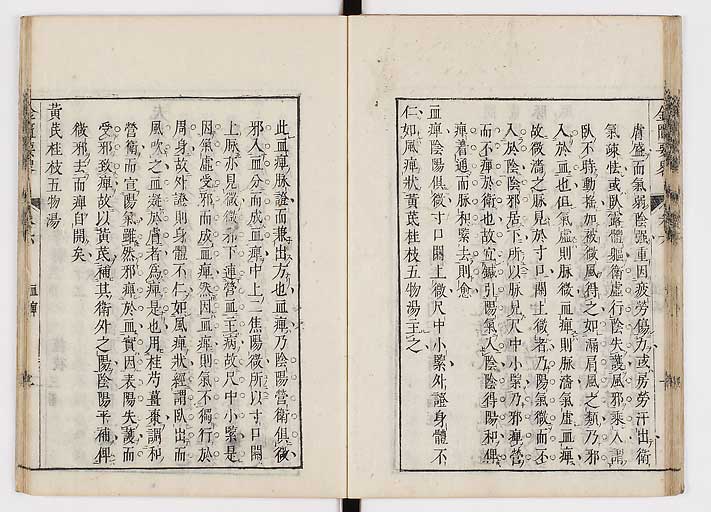 膚盛而氣弱陰強重因疲勞傷力或房勞汗出衛
氣疎怯或臥露體軀衛虛行陰失護風邪乘入謂
臥不時動搖如被微風得之如漏肩風之類乃邪
入於血也但氣虛則脉微血痺則脉濇氣虛血痺
故微濇之脉見於寸口關上微者乃陽氣微而不
入於陰陰邪居下所以脉見尺中小緊乃邪痺營
而不痺於衛也故宜鍼引陽氣入陰陰得陽和俾
痺着通而脉和緊去則愈
血痺陰陽俱微寸口關上微尺中小緊外證身體不
仁如風痺狀黃芪桂枝五物湯主之
此血痺脉證而兼出方也血痺乃陰陽營衛俱微
邪入血分而成血痺中上二焦陽微所以寸口關
上脉亦見微微邪下連營血主病故尺中小緊是
因氣虛受邪而成血痺然因血痺則氣不獨行於
周身故外證則身體不仁如風痺狀經謂臥出而
風吹之血凝於膚者為痺是也用桂芍薑棗調和
營衛而宣陽氣雖然邪痺於血實因表陽失護而
受邪致痺故以黃芪補其衛外之陽陰陽平補俾
微邪去而痺自開矣
黃芪桂枝五物湯
血痺